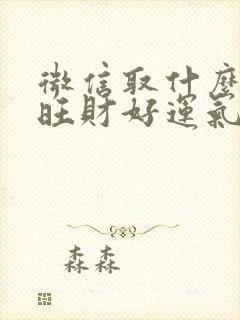 微信取什麼
旺財好運氣
森森